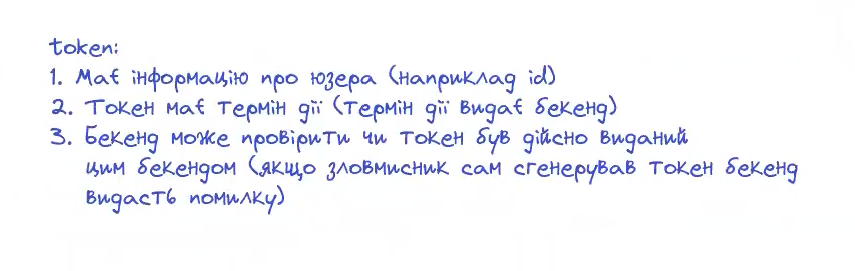 token:
1. Має інформацію про юзера (наприклад id)
2. Токен має термін дії (термін дії видає бекенд)
3. Бекенд може провірити чи токен був дійсно виданий
цим бекендом (якщо зловмисник сам сгенерував токен бекенд
видасть помилку)